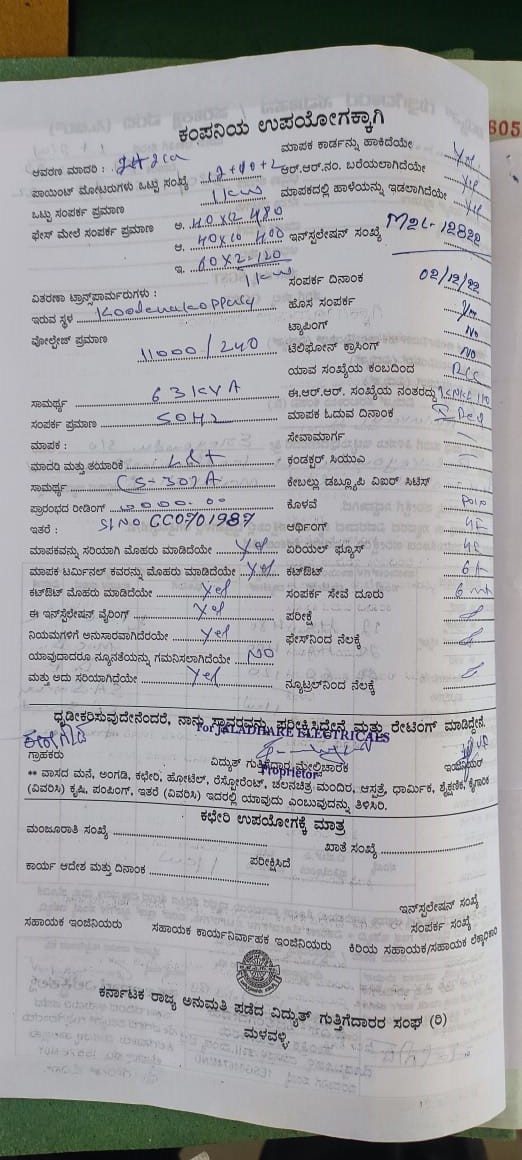 605
ಕಂಪನಿಯ ಉಪಯೋಗಕ್ಕಾಗಿ
ಆವರಣ ಮಾದರಿ : ಮಾಪಕ ಕಾರ್ಡನ್ನು ಹಾಕಿದೆಯೇ Yes
ಪಾಯಿಂಟ್ ಮೋಟರುಗಳು ಒಟ್ಟು ಸಂಖ್ಯೆ 12+10+2 ಆರ್.ಆರ್.ನಂ. ಬರೆಯಲಾಗಿದೆಯೇ Yes
ಒಟ್ಟು ಸಂಪರ್ಕ ಪ್ರಮಾಣ 1 kw ಮಾಪಕದಲ್ಲಿ ಹಾಳೆಯನ್ನು ಇಡಲಾಗಿದೆಯೇ Yes
ಫೇಸ್ ಮೇಲೆ ಸಂಪರ್ಕ ಪ್ರಮಾಣ ಅ. 40 x 12 480
ಆ. 40 x 10 400 ಇನ್‌ಸ್ಟಲೇಷನ್ ಸಂಖ್ಯೆ M2L-12822
ಇ. 60 x 2 = 120
1 kw
ವಿತರಣಾ ಟ್ರಾನ್ಸ್‌ಫಾರ್ಮರುಗಳು : ಸಂಪರ್ಕ ದಿನಾಂಕ 02/12/22
ಇರುವ ಸ್ಥಳ ಹೊಸ ಸಂಪರ್ಕ
ವೋಲ್ಟೇಜ್ ಪ್ರಮಾಣ 11000/240 ಟ್ಯಾಪಿಂಗ್ No
ಟೆಲಿಫೋನ್ ಕ್ರಾಸಿಂಗ್ NO
ಯಾವ ಸಂಖ್ಯೆಯ ಕಂಬದಿಂದ RCC
ಸಾಮರ್ಥ್ಯ 63 KVA ಈ.ಆರ್.ಆರ್. ಸಂಖ್ಯೆಯ ನಂತರದ್ದು
ಸಂಪರ್ಕ ಪ್ರಮಾಣ 50HZ ಮಾಪಕ ಓದುವ ದಿನಾಂಕ
ಮಾಪಕ : ಸೇವಾಮಾರ್ಗ
ಮಾದರಿ ಮತ್ತು ತಯಾರಿಕೆ L&T ಕಂಡಕ್ಟರ್ ಸಿಯುಎ
ಸಾಮರ್ಥ್ಯ CS-302A ಕೇಬಲ್ಲು ಡಬ್ಲ್ಯೂಪಿ ವಿಐರ್ ಸಿಟಿಸ್
ಪ್ರಾರಂಭದ ರೀಡಿಂಗ್ 0000.00 ಕೊಳವೆ
ಇತರೆ : SI NO GC0701987 ಆರ್ಥಿಂಗ್
ಮಾಪಕವನ್ನು ಸರಿಯಾಗಿ ಮೊಹರು ಮಾಡಿದೆಯೇ Yes ಏರಿಯಲ್ ಫ್ಯೂಸ್
ಮಾಪಕ ಟರ್ಮಿನಲ್ ಕವರನ್ನು ಮೊಹರು ಮಾಡಿದೆಯೇ Yes ಕಟ್‌ಔಟ್ 6A
ಕಟ್‌ಔಟ್ ಮೊಹರು ಮಾಡಿದೆಯೇ Yes ಸಂಪರ್ಕ ಸೇವೆ ದೂರು 6 mt
ಈ ಇನ್‌ಸ್ಟಲೇಷನ್ ವೈರಿಂಗ್ Yes ಪರೀಕ್ಷೆ
ನಿಯಮಗಳಿಗೆ ಅನುಸಾರವಾಗಿದೆರೆಯೇ Yes ಫೇಸ್‌ನಿಂದ ನೆಲಕ್ಕೆ
ಯಾವುದಾದರೂ ನ್ಯೂನತೆಯನ್ನು ಗಮನಿಸಲಾಗಿದೆಯೇ NO
ಮತ್ತು ಅದು ಸರಿಯಾಗಿದ್ದೆಯೇ Yes ನ್ಯೂಟ್ರಲ್‌ನಿಂದ ನೆಲಕ್ಕೆ
ಧೃಡೀಕರಿಸುವುದೇನೆಂದರೆ, ನಾನು ಸ್ಥಾವರವನ್ನು ಪರೀಕ್ಷಿಸಿದ್ದೇನೆ ಮತ್ತು ರೇಟಿಂಗ್ ಮಾಡಿದ್ದೇನೆ.
For JALADHARE ELECTRICALS
ಗ್ರಾಹಕರು ವಿದ್ಯುತ್ ಗುತ್ತಿಗೆದಾರ ಮೇಲ್ವಿಚಾರಕ ಇಂಜಿನಿಯರ್
Proprietor
** ವಾಸದ ಮನೆ, ಅಂಗಡಿ, ಕಛೇರಿ, ಹೋಟೆಲ್, ರೆಸ್ಟೋರೆಂಟ್, ಚಲನಚಿತ್ರ ಮಂದಿರ, ಆಸ್ಪತ್ರೆ, ಧಾರ್ಮಿಕ, ಶೈಕ್ಷಣಿಕ, ಕೈಗಾರಿಕೆ
(ವಿವರಿಸಿ) ಕೃಷಿ, ಪಂಪಿಂಗ್, ಇತರೆ (ವಿವರಿಸಿ) ಇದರಲ್ಲಿ ಯಾವುದು ಎಂಬುವುದನ್ನು ತಿಳಿಸಿರಿ.
ಕಛೇರಿ ಉಪಯೋಗಕ್ಕೆ ಮಾತ್ರ
ಮಂಜೂರಾತಿ ಸಂಖ್ಯೆ ಖಾತೆ ಸಂಖ್ಯೆ
ಕಾರ್ಯ ಆದೇಶ ಮತ್ತು ದಿನಾಂಕ ಪರೀಕ್ಷಿಸಿದೆ
ಇನ್‌ಸ್ಟಲೇಷನ್ ಸಂಖ್ಯೆ
ಸಂಪರ್ಕ ಸಂಖ್ಯೆ
ಸಹಾಯಕ ಇಂಜಿನಿಯರು ಸಹಾಯಕ ಕಾರ್ಯನಿರ್ವಾಹಕ ಇಂಜಿನಿಯರು ಕಿರಿಯ ಸಹಾಯಕ/ಸಹಾಯಕ ಲೆಕ್ಕಾಧಿಕಾರಿ
ಕರ್ನಾಟಕ ರಾಜ್ಯ ಅನುಮತಿ ಪಡೆದ ವಿದ್ಯುತ್ ಗುತ್ತಿಗೆದಾರರ ಸಂಘ (ರಿ)
ಮಳವಳ್ಳಿ